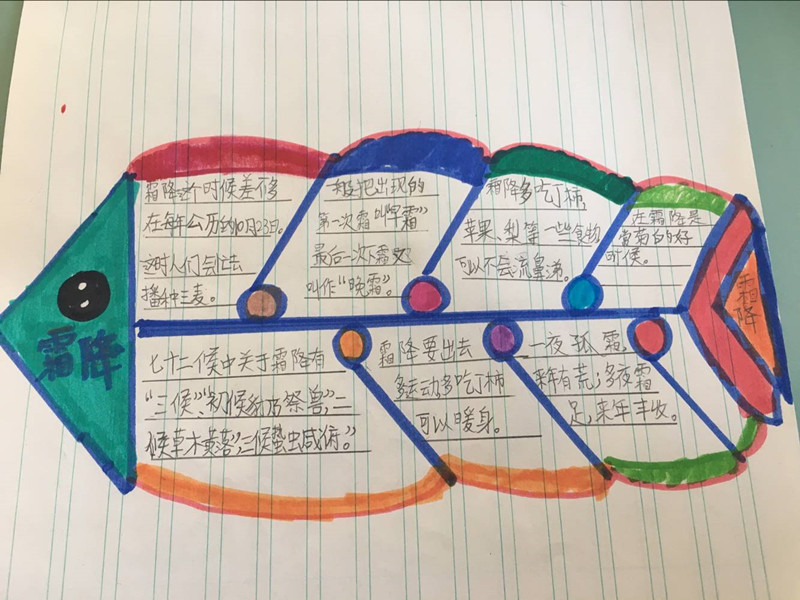 霜降
霜降这个时候差不多
在每年公历的10月23日。
这时人们会去
播种三麦。
一般把出现的
第一次霜叫"早霜"
最后一次下霜又
叫作"晚霜"。
霜降多吃丁柿,
苹果、梨等一些食物
可以不会流鼻涕。
在霜降是
赏菊的好
时候。
霜降
七十二候中关于霜降有
"三候","初候豺乃祭兽,二
候草木黄落,三候蛰虫咸俯。"
霜降要出去
多运动多吃丁柿
可以暖身。
一夜孤霜,
来年有荒;多夜霜
足,来年丰收。